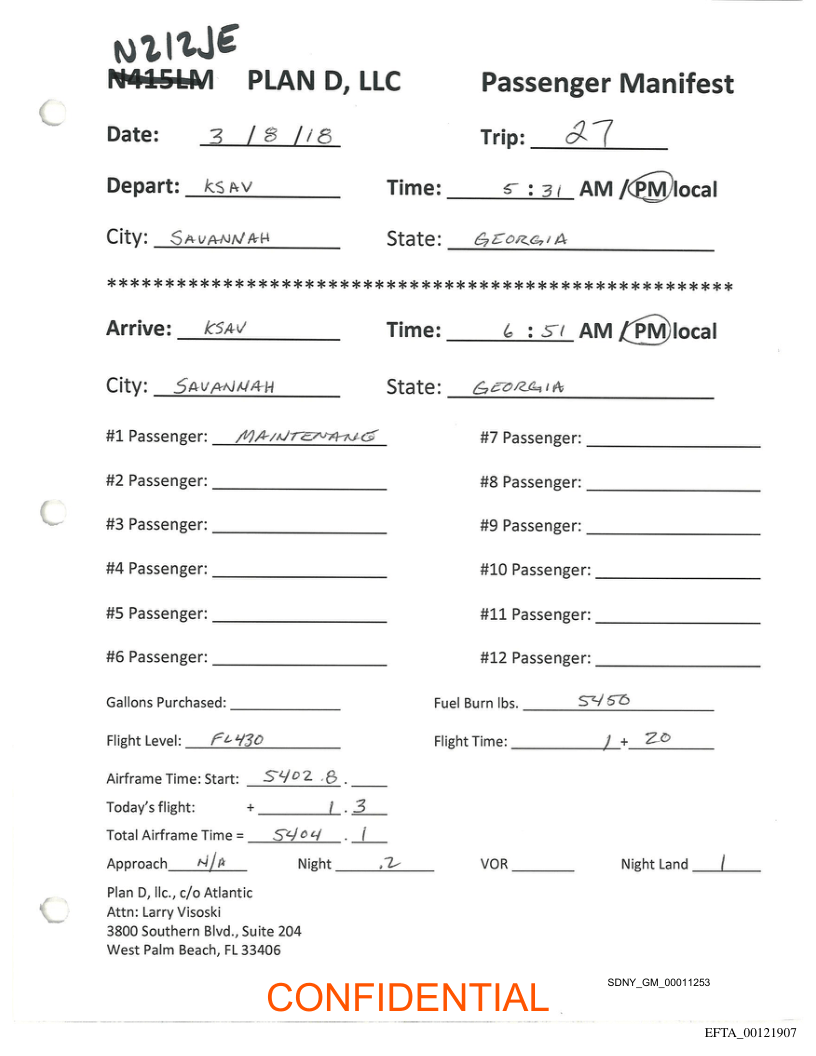 N212JE
N415LM PLAN D, LLC Passenger Manifest
Date: 3 / 8 / 18 Trip: 27
Depart: KSAV Time: 5 : 31 AM / PM local
City: SAVANNAH State: GEORGIA
******************************************************
Arrive: KSAV Time: 6 : 51 AM / PM local
City: SAVANNAH State: GEORGIA
#1 Passenger: MAINTENANCE #7 Passenger:
#2 Passenger: #8 Passenger:
#3 Passenger: #9 Passenger:
#4 Passenger: #10 Passenger:
#5 Passenger: #11 Passenger:
#6 Passenger: #12 Passenger:
Gallons Purchased: Fuel Burn lbs. 5450
Flight Level: FL430 Flight Time: 1 + 20
Airframe Time: Start: 5402.8 .
Today's flight: + 1 . 3
Total Airframe Time = 5404 . 1
Approach N/A Night .2 VOR Night Land 1
Plan D, llc., c/o Atlantic
Attn: Larry Visoski
3800 Southern Blvd., Suite 204
West Palm Beach, FL 33406
SDNY_GM_00011253
CONFIDENTIAL
EFTA_00121907